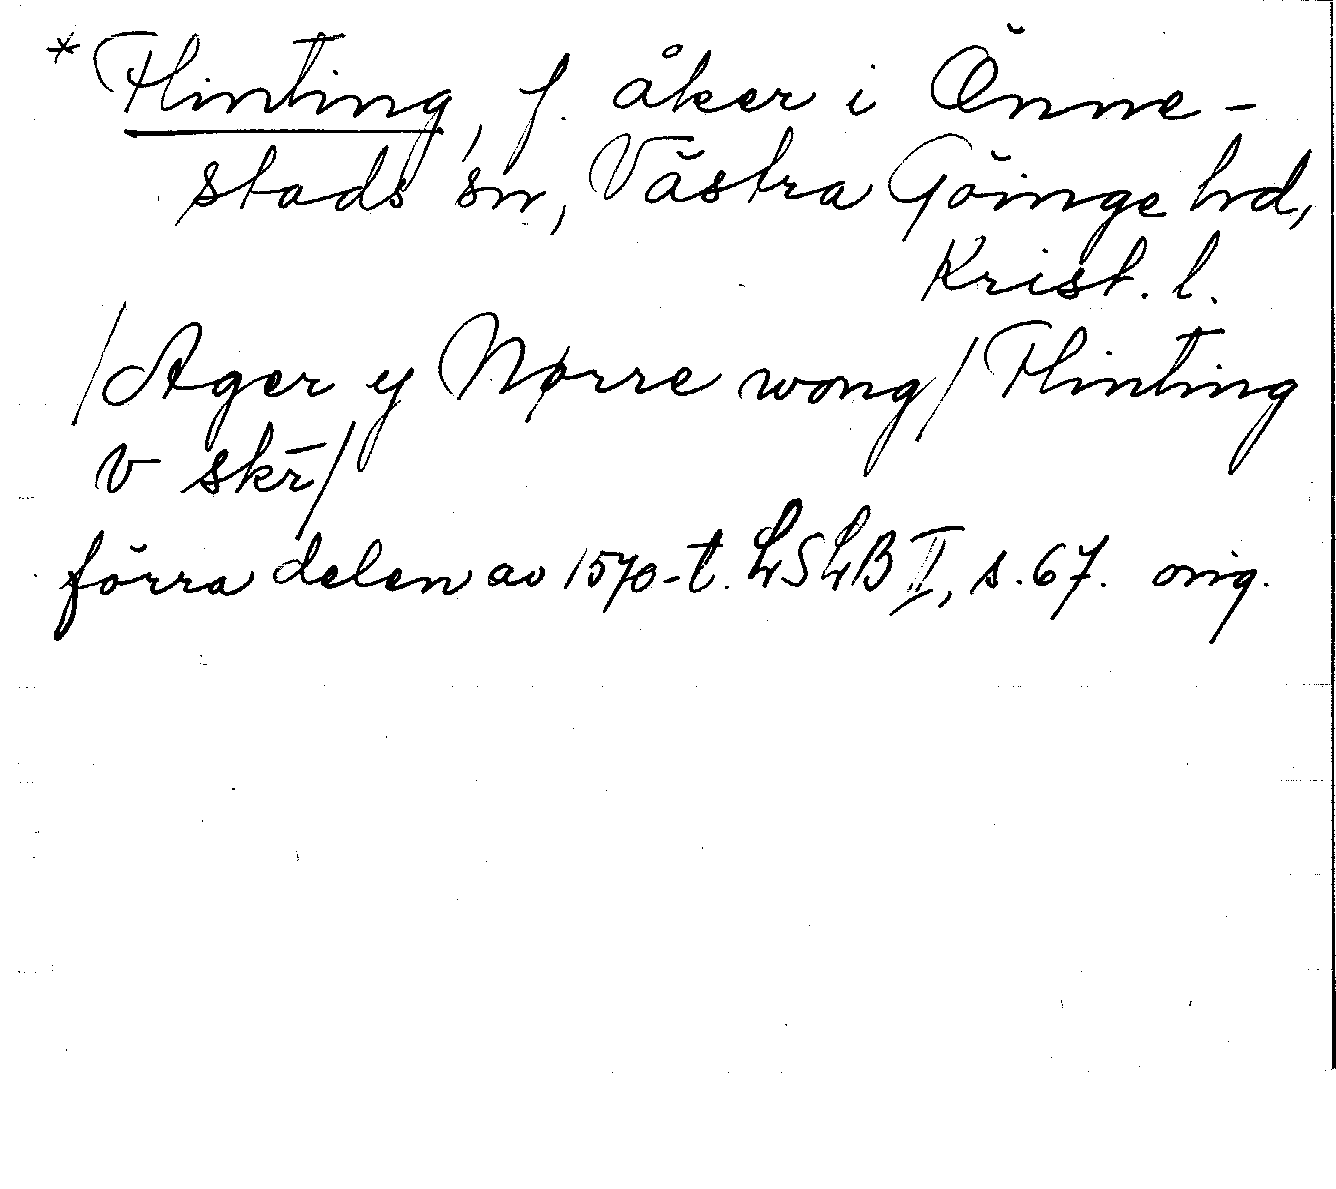 * Flinting, f. åker i Önne-
stads sn, Västra Göinge hd,
Krist. l.
/Ager y Nørre wong/ Flinting
v skr̄/
förra delen av 1570-t. LSLB II, s. 67. orig.